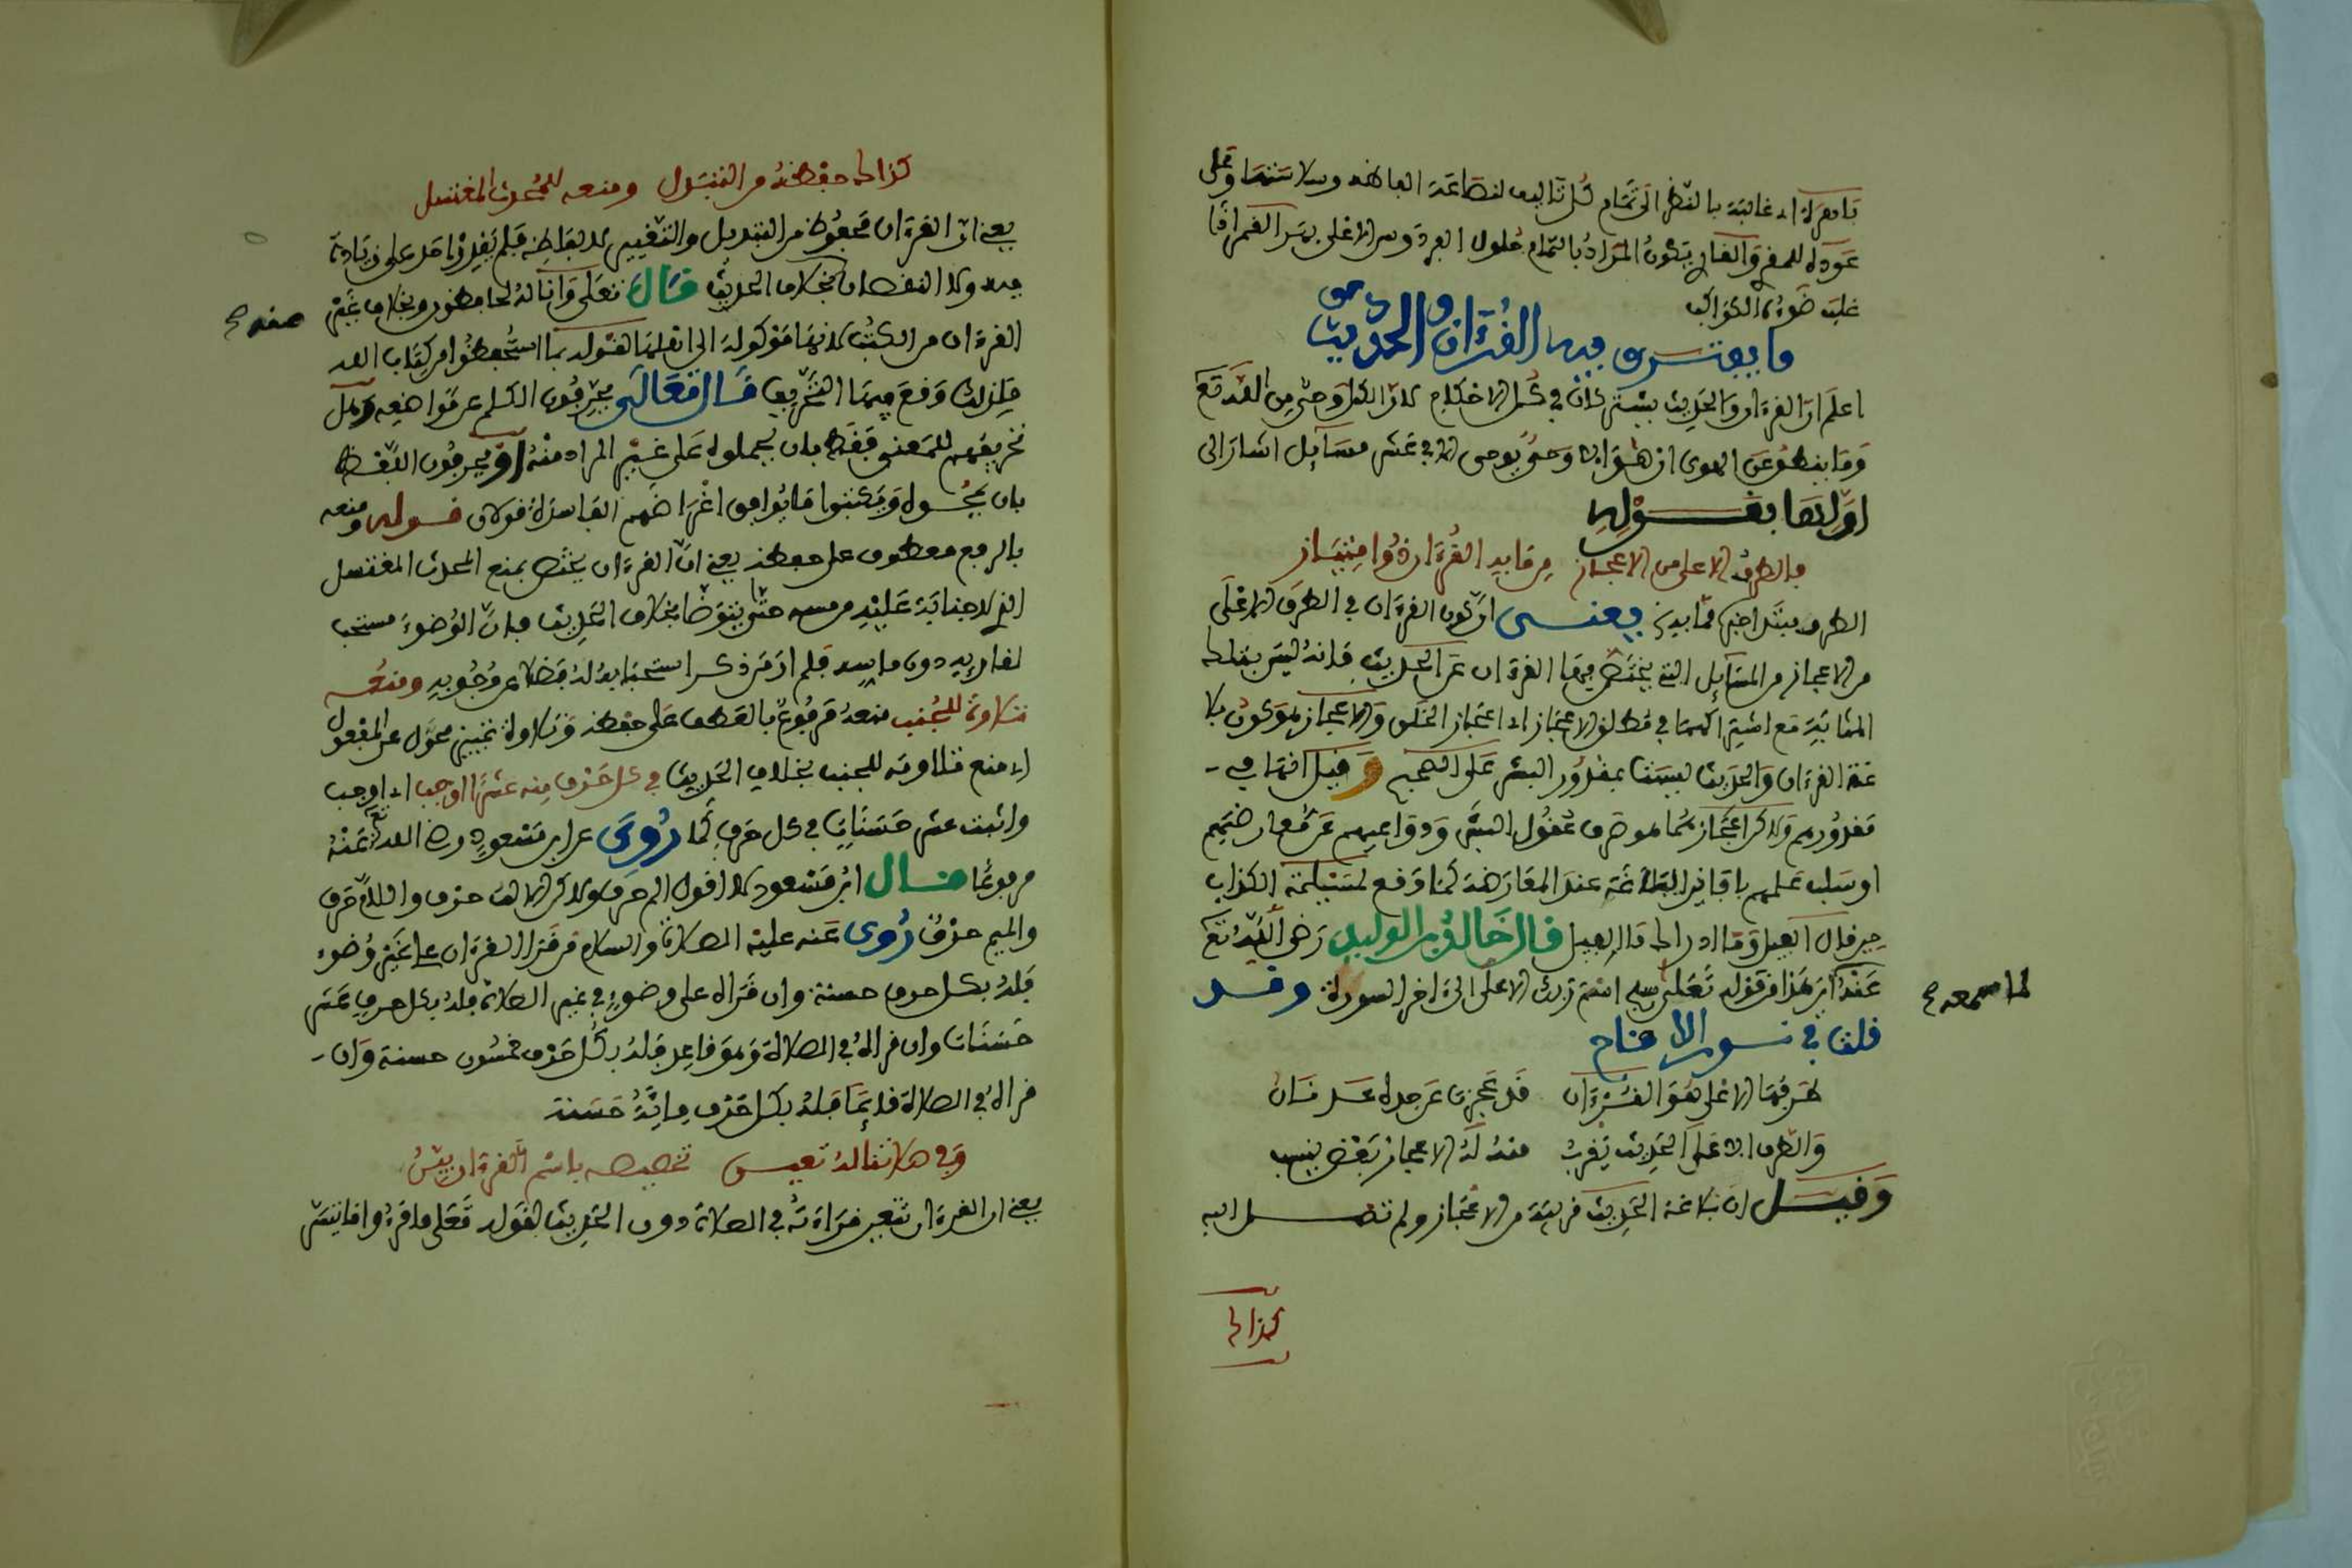 باهرة اي غالبة بالنظر الى تمام كل تاليف لنصاعة الفاظه وسلاستها وعلى
عوده للمفرق الفا يكون المراد بالتمام حلول الفردوس الاعلى بهر القمر اذا
غلب ضوءه الكواكب
ما يفترق فيه القرءان والحديث
اعلم ان القرءان والحديث يشتركان في كل الاحكام لان الكل وحي من الله تع
وما ينطق عن الهوى ان هو الا وحي يوحى الا في عشر مسايل اشار الى
اولها بقوله
بالطرف الاعلى من الاعجاز من قابه القرءان ذو امتياز
الطرف مبتدا خبره قابه يعني ان كون القرءان في الطرف الاعلى
من الاعجاز من المسايل التي يختص فيها القرءان عن الحديث فانه ليس بتلك
المثابة مع اشتراكهما في مطلق الاعجاز اي اعجاز الخلق والاعجاز هو كون بلا
غة القرءان والحديث ليستا بمقدور البشر على الصحيح وقيل انهما في
مقدورهم ولاكن اعجازهما هو صرف عقول البشر ودواعيهم عن معارضتهم
او سلب علمهم بافانين البلاغة عند المعارضة كما وقع لمسيلمة الكذاب
حين قال الفيل وما ادراك ما الفيل قال خالد بن الوليد رضي الله تع
عنه اين هذا من قوله تعلى سبح اسم ربك الاعلى الى ءاخر السورة وقد
لما سمعه صح
قلت في نور الاقاح
طرفها الاعلى هو القرءان قد عجزت عن جله عدنان
والطرف الاعلى الحديث يقرب منه له الاعجاز بعض ينسب
وقيل ان بلاغة الحديث قريبة من الاعجاز ولم تصل اليه
كذاك
كذاك حفظه من التبدل ومنعه للمحدث المغتسل
يعني ان القرءان محفوظ من التبديل والتغيير لالفاظه فلم يقدر احد على زيادة
فيه ولا النقصان بخلاف الحديث قال تعلى وانا له لحافظون وبخلاف غير
منه صح
القرءان من الكتب لانها موكولة الى اهلها لقوله بما استحفظوا من كتاب الله
فلذلك وقع فيها التحريف قال تعالى يحرفون الكلم عن مواضعه وهل
تحريفهم للمعنى فقط بان يحملوه على غير المراد منه او يحرفون اللفظ
بان يمحوه ويكتبوا ما يوافق اغراضهم الفاسدة قولان قوله ومنعه
بالرفع معطوف على حفظه يعني ان القرءان يختص بمنع المحدث المغتسل
اي لا جنابة عليه من مسه حتى يتوضا بخلاف الحديث فان الوضوء مستحب
لقاريه دون ماسه فلم ار من ذكر استحبابه له فضلا عن وجوبه ومنعه
تلاوة للجنب منعه مرفوع بالعطف على حفظه وتلاوة تمييز محول عن المفعول
اي منع تلاوته للجنب بخلاف الحديث في كل حرف منه عشرا اوجب اي اوجب
واثبت عشر حسنات في كل حرف لما روى عن ابن مسعود رضي الله تع عنه
مرفوعا قال ابن مسعود لا اقول الم حرف ولاكن الالف حرف واللام حرف
والميم حرف روى عنه عليه الصلاة والسلام من قرا القرءان على غير وضوء
فله بكل حرف حسنة وان قراه على وضوء في غير الصلاة فله بكل حرف عشر
حسنات وان قراه في الصلاة وهو قاعد فله بكل حرف خمسون حسنة وان
قراه في الصلاة قايما فله بكل حرف ماية حسنة
وفي صلاتنا له تعين تخصيصه باسم القرءان بين
يعني ان القرءان تتعين قراءته في الصلاة دون الحديث لقوله تعلى فاقرءوا ما تيسر